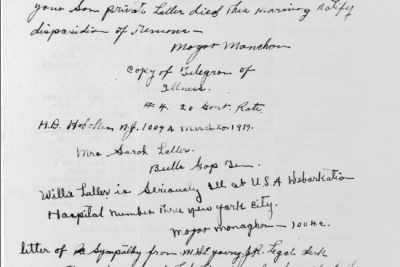 your Son private Laller died this marning notify
disposidion of Remons—
Mojor Monchon
Copy of Telegram of
Illness.
#4. 20 Govt. Rate.
H.D. N.J. 1009 A March 20, 1919.
Mrs Sarah Laller.
Bulls Gap Ten.
Willie Laller is Seriously ill at U.S.A Webarkation
Hospital number three new york City.
Mojor monaghon — 100 A.
letter of Sympathy from young JR. Legal